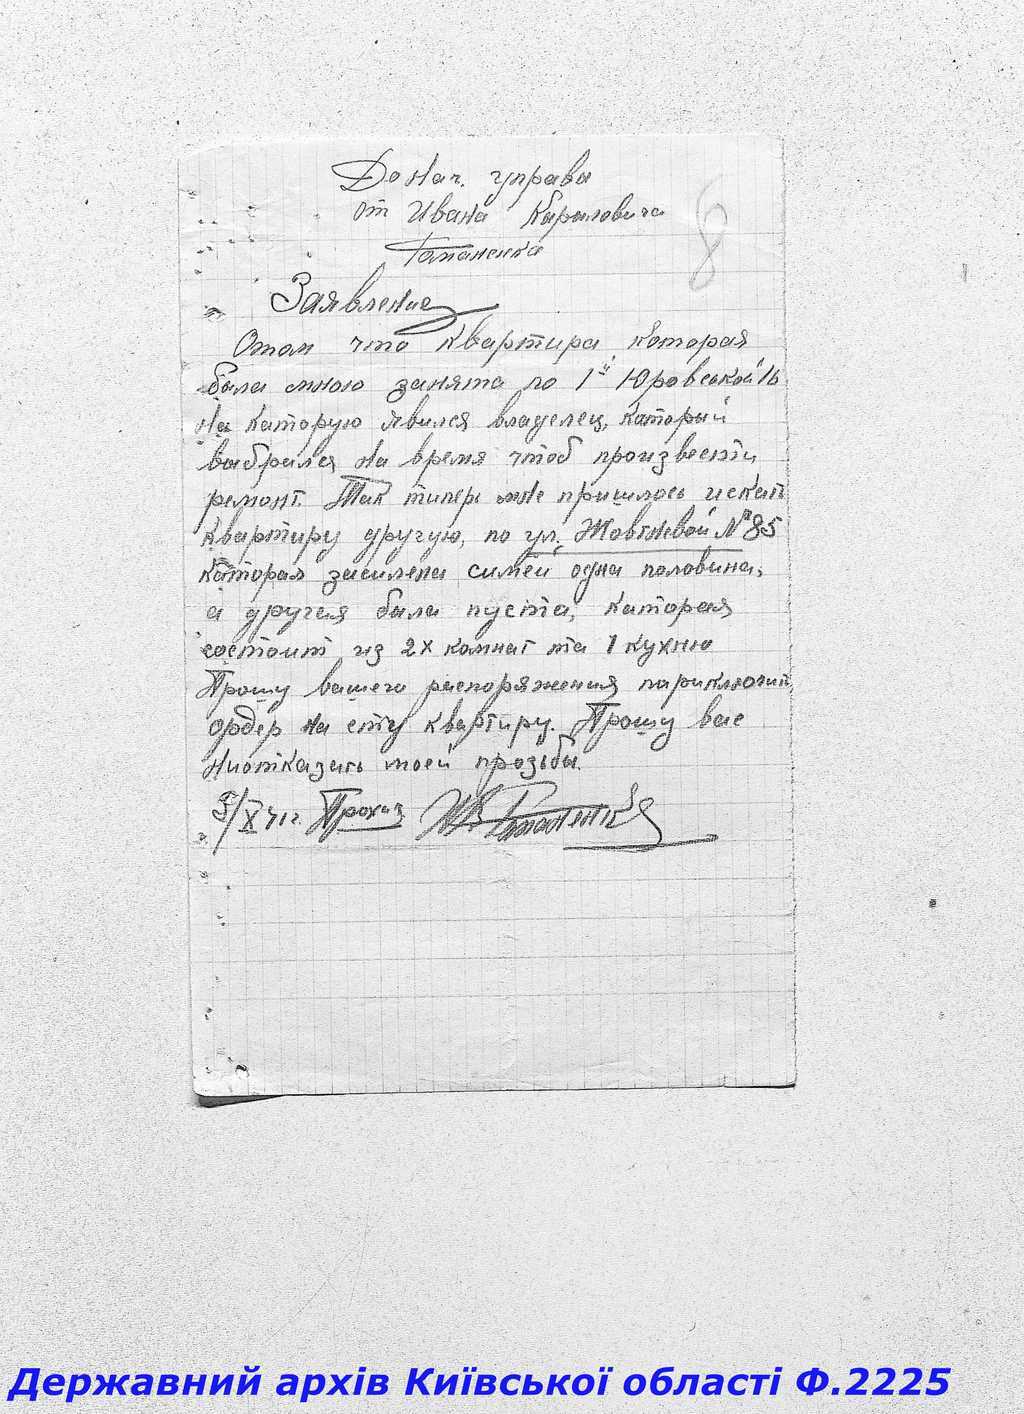 До Нач. управи
от Ивана Кариловича
Романенка
8
Заявление
Отом что квартира которая
была мною занята по 1й Юровской 16
На каторую явился владелец, каторый
выбрался на время чтоб произвести
ремонт. Так типерь мне пришлось искать
квартиру другую, по ул. Жовтневой № 85
каторая засилена симей одна половина,
а другая была пуста, каторая
состоит из 2х комнат та 1 кухню
Прошу вашего распоряжения
ордер на ету квартиру. Прошу вас
ниотказать моей прозьбы.
/X 41г.
Державний архів Київської області Ф.2225